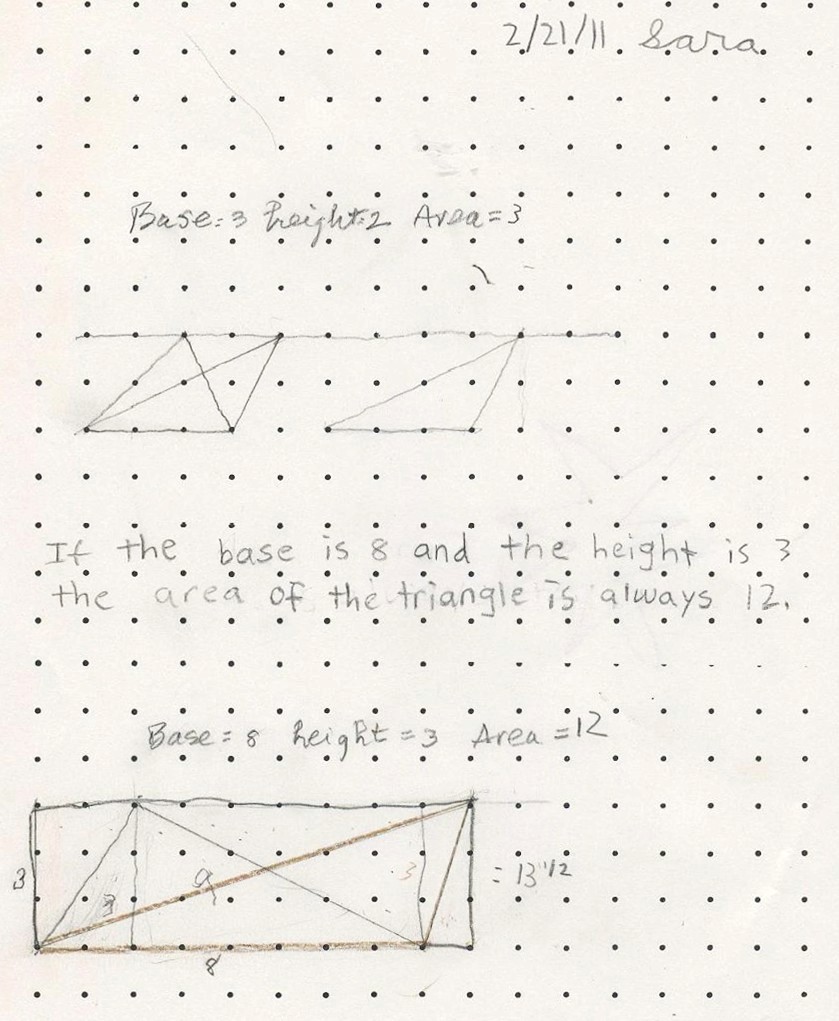 2/21/11 Sara
Base=3 height=2 Area=3
If the base is 8 and the height is 3
the area of the triangle is always 12.
Base=8 height=3 Area=12
3
3
9
3
= 13 1/2
8